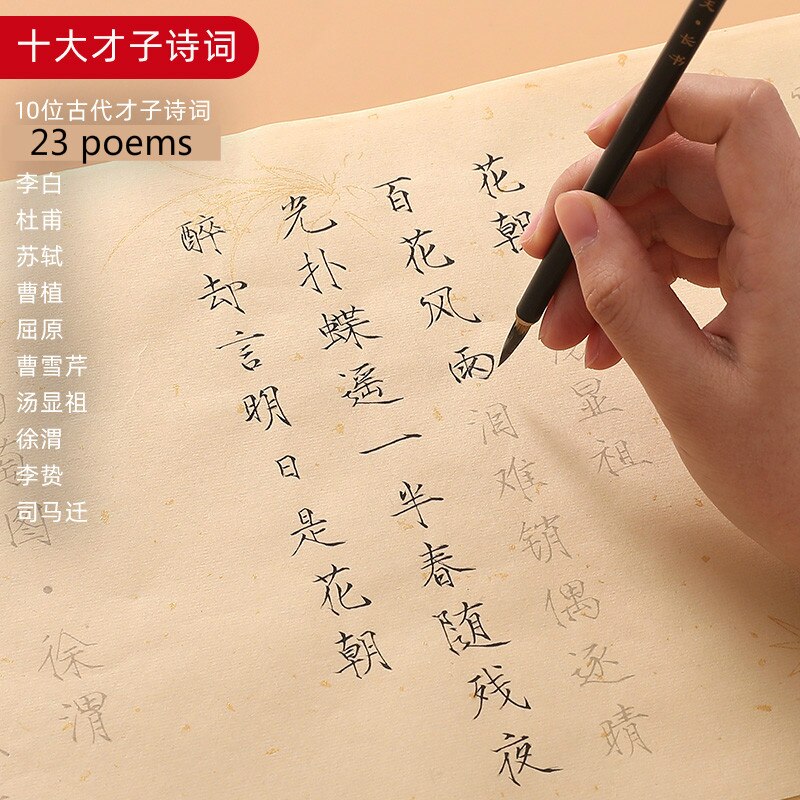 十大才子诗词
10位古代才子诗词
23 poems
李白
杜甫
苏轼
曹植
屈原
曹雪芹
汤显祖
徐渭
李贽
司马迁
花朝 汤显祖
百花风雨泪难销偶逐晴
光扑蝶遥一半春随残夜
醉却言明日是花朝
图·徐渭
长书